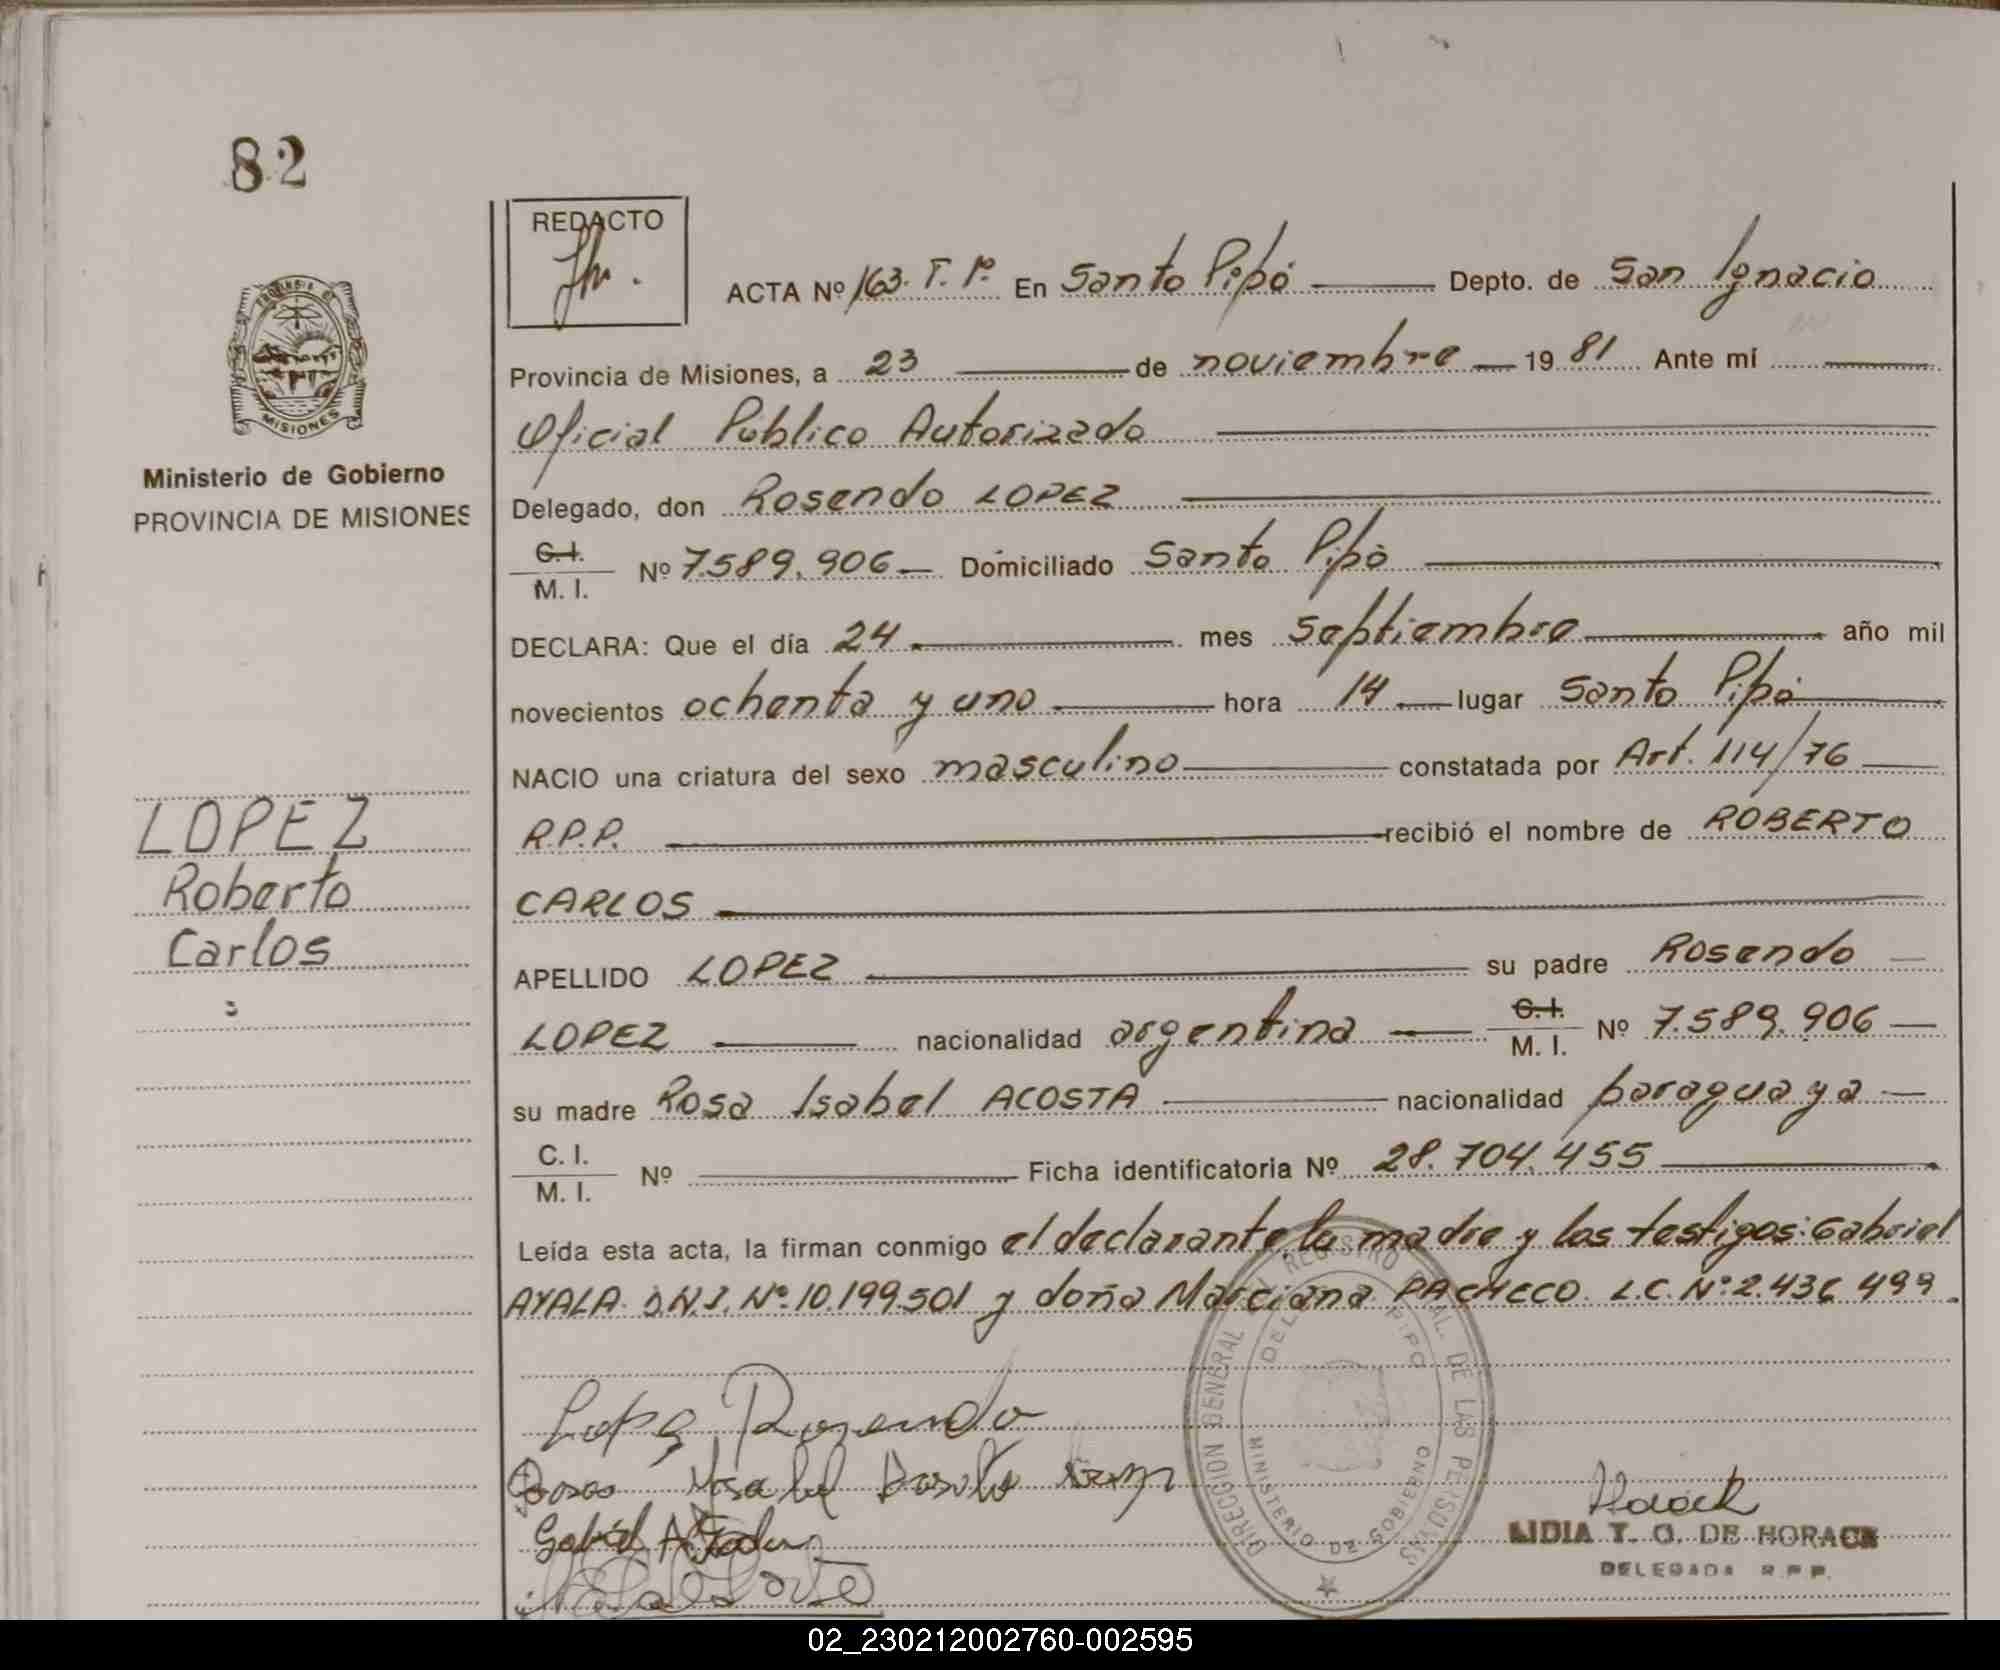 82
REDACTO
ACTA Nº 163. T. Iº. En Santo Pipó Depto. de San Ignacio
Provincia de Misiones, a 23 de noviembre 1981 Ante mí
Oficial Público Autorizado
Delegado, don Rosendo LOPEZ
C.I.
M. I. Nº 7.589.906 Domiciliado Santo Pipó
DECLARA: Que el día 24 mes septiembre año mil
novecientos ochenta y uno hora 14 lugar Santo Pipó
NACIO una criatura del sexo masculino constatada por Art. 114/76
R.P.P. recibió el nombre de ROBERTO
CARLOS
APELLIDO LOPEZ su padre Rosendo
LOPEZ nacionalidad argentina C.I. M. I. Nº 7.589.906
su madre Rosa Isabel ACOSTA nacionalidad paraguaya
C. I.
M. I. Nº Ficha identificatoria Nº 28.704.455
Leída esta acta, la firman conmigo el declarante, la madre y los testigos: Gabriel
AYALA D.N.I. Nº 10.199.501 y doña Marciana PACHECO. L.C. Nº 2.436.499.
PROVINCIA DE
MISIONES
Ministerio de Gobierno
PROVINCIA DE MISIONES
LOPEZ
Roberto
Carlos
Lopez Rosendo
DIRECCION GENERAL DEL REGISTRO DE LAS PERSONAS
PIPO
MINISTERIO DE GOBIERNO
LIDIA T. O. DE HORACK
DELEGADA R.P.P.
02_230212002760-002595